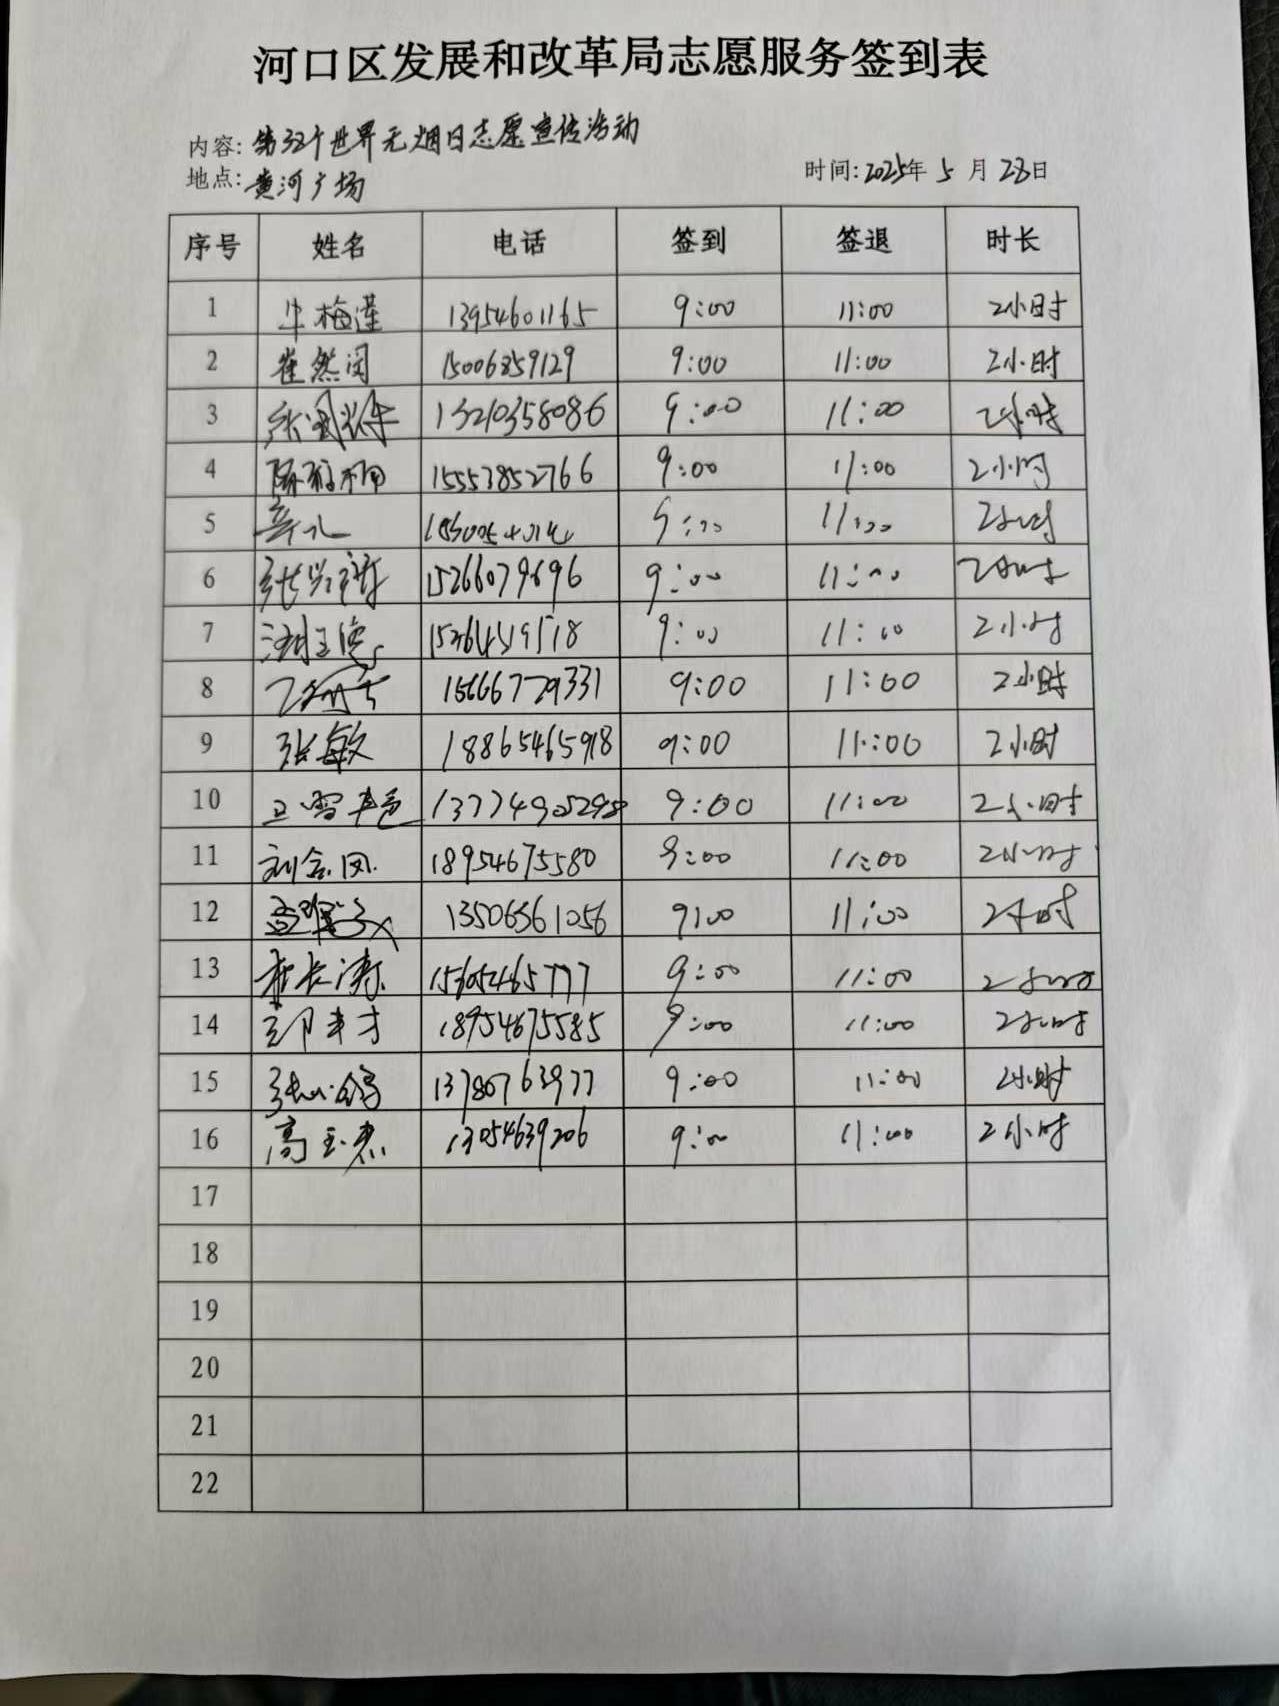 河口区发展和改革局志愿服务签到表
内容: 第33个世界无烟日志愿宣传活动
地点: 黄河广场 时间: 2025年 5 月 28日
序号 姓名 电话 签到 签退 时长
1 牛梅莲 13954601165 9:00 11:00 2小时
2 崔然闵 15006859129 9:00 11:00 2小时
3 13210358086 9:00 11:00 2小时
4 15557852766 9:00 11:00 2小时
5 9:00 11:00 2小时
6 15266079696 9:00 11:00 2小时
7 9:00 11:00 2小时
8 15666729331 9:00 11:00 2小时
9 张敏 18865465918 9:00 11:00 2小时
10 9:00 11:00 2小时
11 刘金凤 18954675580 9:00 11:00 2小时
12 9:00 11:00 2小时
13 9:00 11:00 2小时
14 18954675585 9:00 11:00 2小时
15 9:00 11:00 2小时
16 高玉杰 13054639206 9:00 11:00 2小时
17
18
19
20
21
22